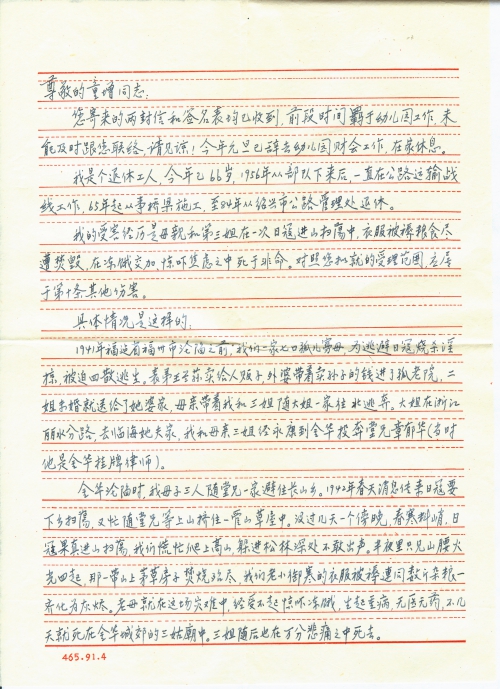 尊敬的童增同志:
您寄来的两封信和签名表均已收到,前段时间羁于幼儿园工作,未
能及时跟您联络,请见谅!今年元旦已辞去幼儿园财会工作,在家休息。
我是个退休工人,今年已66岁,1956年从部队下来后一直在公路运输战
线工作,65年起从事桥梁施工,至84年从绍兴市公路管理处退休。
我的受害经历是母亲和第三姐在一次日寇进山扫荡中,衣服被褥粮食尽
遭焚毁,在冻饿交加,惊吓焦虑之中死于非命。对照您拟就的受理范围,应属
于第十条其他伤害。
具体情况是这样的:
1941年福建省福州市沦陷之前,我们一家七口孤儿寡母,为逃避日寇烧杀淫
掠,被迫四散逃生,表弟王学荪卖给人贩子,外婆带着卖孙子的钱进了孤老院,二
姐未婚就送给了她婆家,母亲带着我和三姐随大姐一家往北逃奔。大姐在浙江
丽水分路,去临海她夫家,我和母亲三姐经永康到金华投奔堂兄章郁华(当时
他是金华挂牌律师)。
金华沦陷时,我母子三人随堂兄一家避住长山乡。1942年春天消息传来日寇要
下乡扫荡,又忙随堂兄等上山挤住一营山草屋中。没过几天一个傍晚,春寒料峭,日
寇果真进山扫荡,我们慌忙爬上高山,躲进松林深处不敢出声。半夜里只见山腰火
光四起,那一带山上茅草房子焚烧殆尽,我们老小御寒的衣服被褥连同数斤杂粮一
齐化为灰烬。老母就在这场灾难中,经受不起惊吓冻饿,生起重病,无医无药,不几
天就死在金华城郊的三姑庙中。三姐随后也在万分悲痛之中死去。
465.91.4